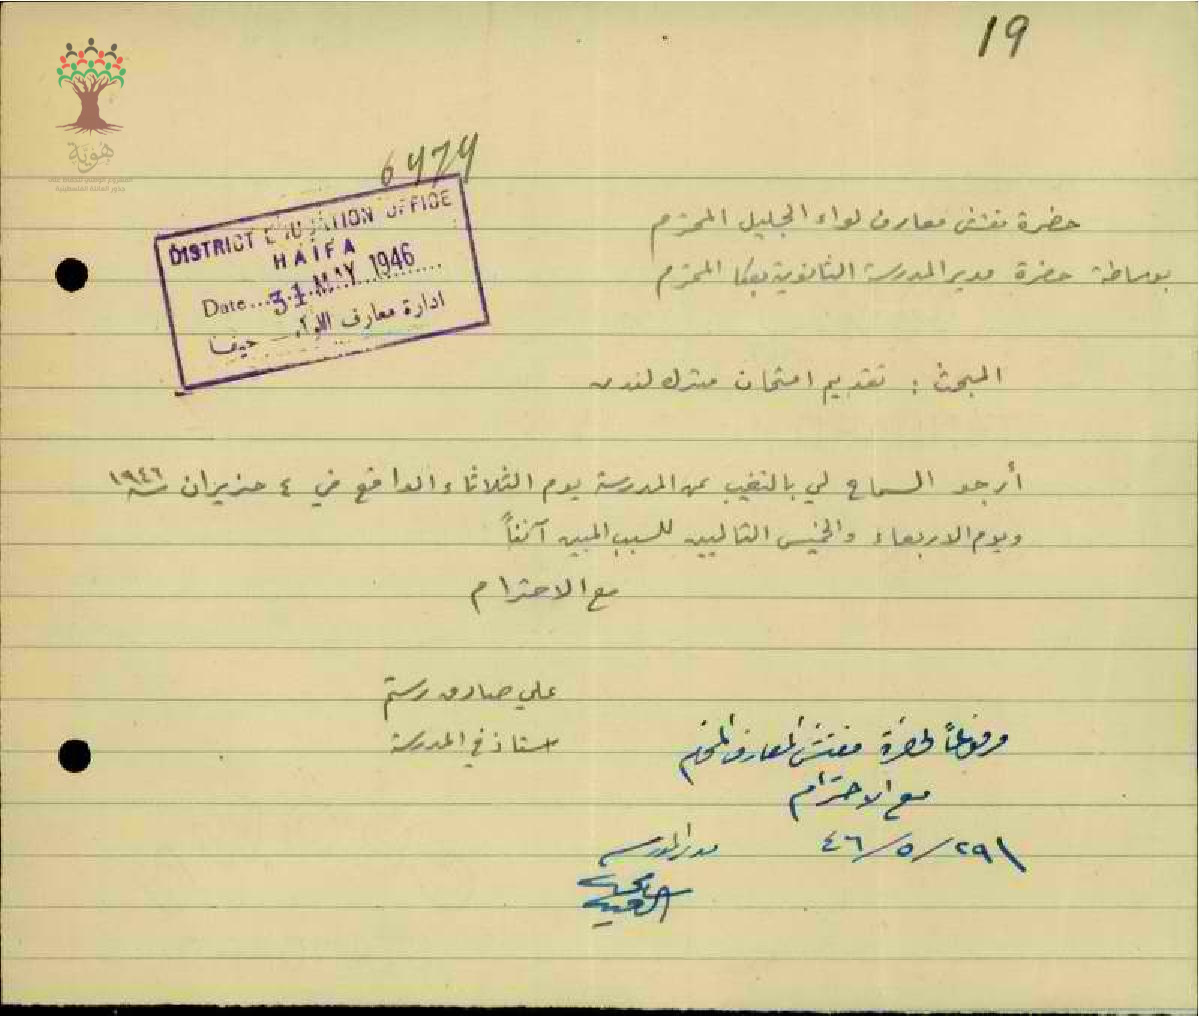 19
هوية
6474
DISTRICT EDUCATION OFFICE
HAIFA
Date... 31 MAY 1946
ادارة معارف اللواء - حيفا
حضرة مفتش معارف لواء الجليل المحترم
بوساطة حضرة مدير المدرسة الثانوية بعكا المحترم
المبحث : تقديم امتحان مترك لندن
أرجو السماح لي بالتغيب عن المدرسة يوم الثلاثاء الواقع في ٤ حزيران سنة ١٩٤٦
ويوم الاربعاء والخميس التاليين للسبب المبين آنفاً
مع الاحترام
علي صادق رستم
استاذ في المدرسة
مرفوعاً لحضرة مفتش المعارف المحترم
مع الاحترام
٢٩/٥/٤٦
مدير المدرسة